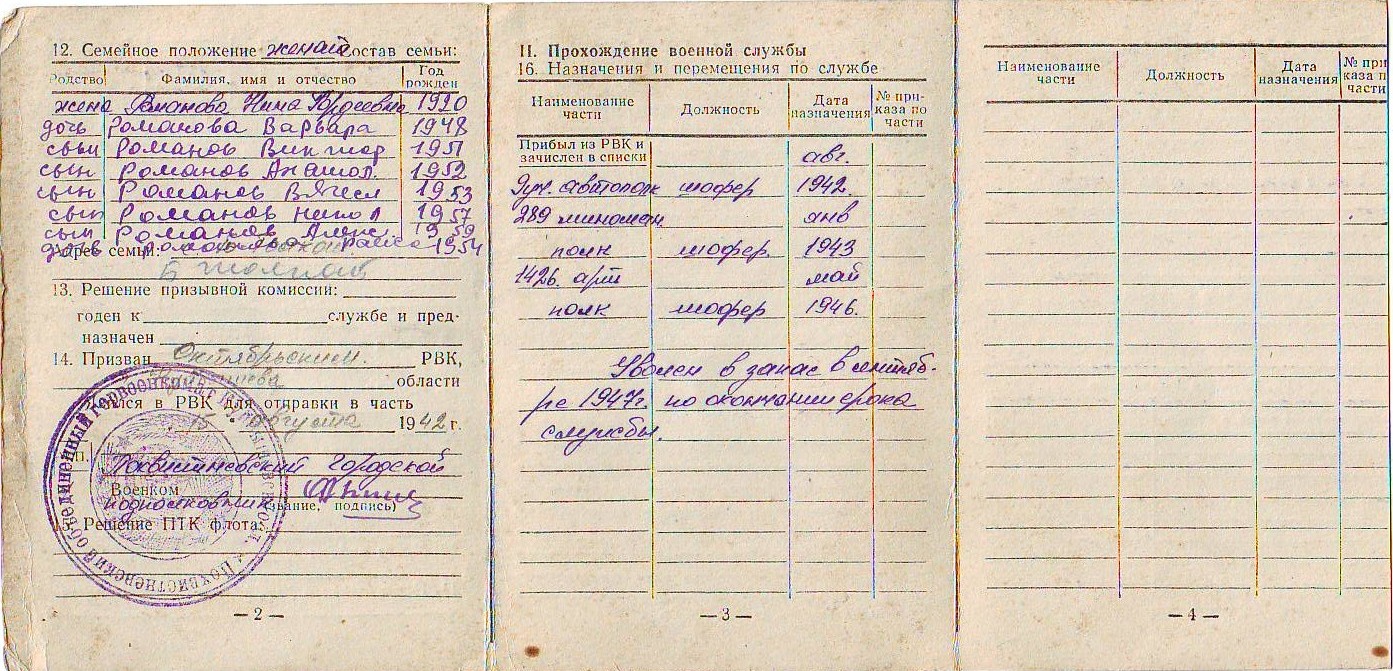 12. Семейное положение женат состав семьи:
Родство Фамилия, имя и отчество Год рожден
жена Романова Нина Гордеевна 1920
дочь Романова Варвара 1948
сын Романов Виктор 1951
сын Романов Анатол. 1952
сын Романов Вячесл 1953
сын Романов Никол 1957
сын Романов Алекс. 1959
дочь Романова Раиса 1954
Адрес семьи:
13. Решение призывной комиссии:
годен к службе и пред-
назначен
14. Призван Октябрьским РВК,
области
явился в РВК для отправки в часть
августа 1942 г.
п.
Похвистневский Городской
Военком
подполковник (звание, подпись)
15. Решение ПТК флота:
— 2 —
II. Прохождение военной службы
16. Назначения и перемещения по службе
Наименование части Должность Дата назначения № при-каза по части
Прибыл из РВК и
зачислен в списки авг.
9 уч. автополк шофер 1942.
289 миномет. янв
полк шофер 1943
1426. арт май
полк шофер 1946.
Уволен в запас в сентяб-
ре 1947г. по окончании срока
службы.
— 3 —
Наименование части Должность Дата назначения № при каза п части
— 4 —